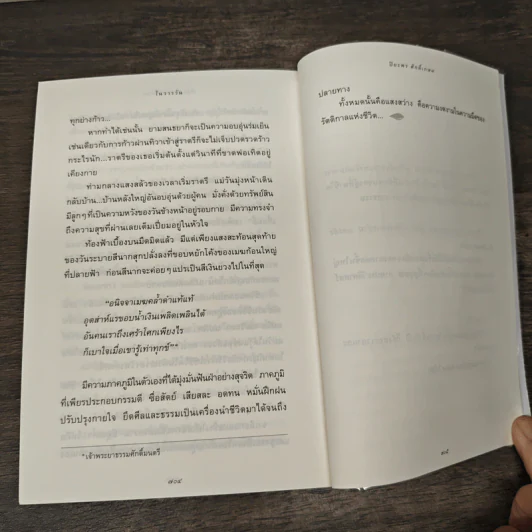 ในวารวัน
ทุกย่างก้าว...
หากทำได้เช่นนั้น ยามสนธยาก็จะเป็นความอบอุ่นร่มเย็น
เช่นเดียวกับการก้าวผ่านทิวาเข้าสู่ราตรีก็จะไม่เจ็บปวดรวดร้าว
กระไรนัก...ราตรีของเธอเริ่มต้นตั้งแต่วินาทีที่ขาดพ่อเทิดอยู่
เคียงกาย
ท่ามกลางแสงสลัวของเวลาเริ่มราตรี แม่วันมุ่งหน้าเดิน
กลับบ้าน...บ้านหลังใหญ่อันอบอุ่นด้วยผู้คน มั่งคั่งด้วยทรัพย์สิน
มีลูกๆที่เป็นความหวังของวันข้างหน้าอยู่รอบกาย มีความทรงจำ
ถึงความสุขที่ผ่านเลยเต็มเปี่ยมอยู่ในหัวใจ
ท้องฟ้าเบื้องบนมืดมิดแล้ว มีแต่เพียงแสงสะท้อนสุดท้าย
ของวันระบายสีนากสุกปลั่งลงที่ขอบหยักโค้งของเมฆก้อนใหญ่
ที่ปลายฟ้า ก่อนสีนากจะค่อยๆแปรเป็นสีเงินยวงไปในที่สุด
“อนิจจาเมฆคล้ำดำแท้แท้
อุตส่าห์แรขอบน้ำเงินเพลิดเพลินได้
อันคนเราถึงเศร้าโศกเพียงไร
ก็เบาใจเมื่อเขารู้เท่าทุกข์”*
มีความภาคภูมิในตัวเองที่ได้มุ่งมั่นฟันฝ่าอย่างสุจริต ภาคภูมิ
ที่เพียรประกอบกรรมดี ซื่อสัตย์ เสียสละ อดทน หมั่นฝึกฝน
ปรับปรุงกายใจ ยึดศีลและธรรมเป็นเครื่องนำชีวิตมาได้จนถึง
*เจ้าพระยาธรรมศักดิ์มนตรี
๗๐๔
ปิยะพร ศักดิ์เกษม
ปลายทาง
ทั้งหมดนั้นคือแสงสว่าง คือความงดงามในความมืดของ
รัตติกาลแห่งชีวิต...